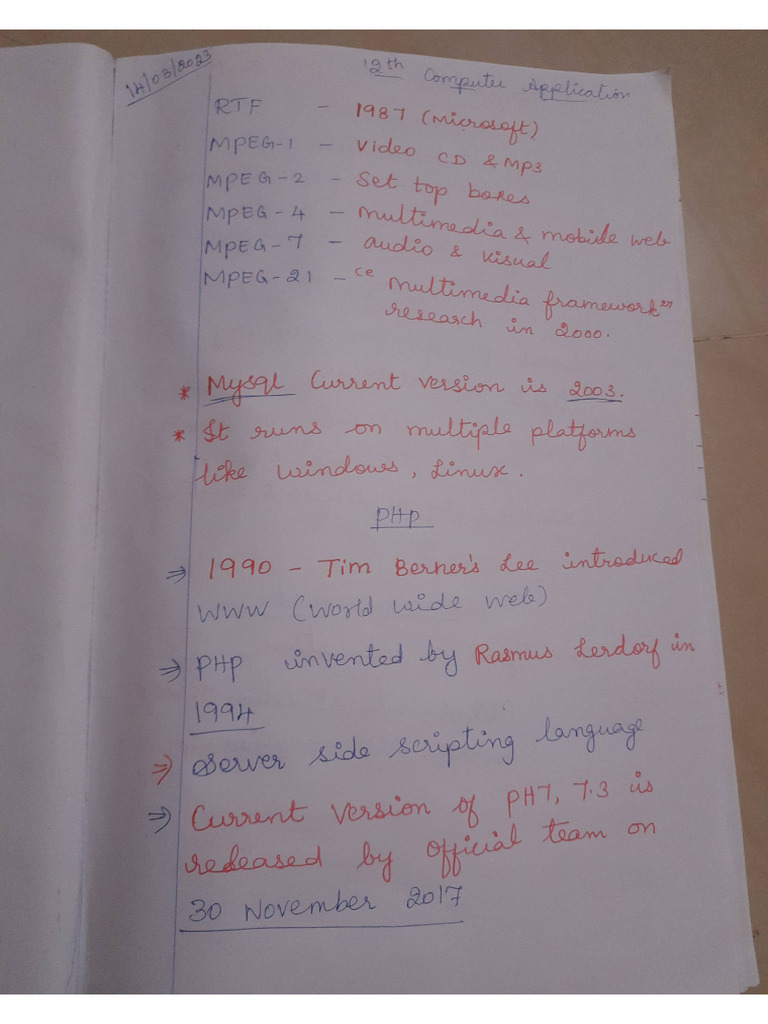 14/03/2023
12th Computer Application
RTF - 1987 (Microsoft)
MPEG-1 - Video CD & MP3
MPEG-2 - Set top boxes
MPEG-4 - Multimedia & mobile web
MPEG-7 - audio & visual
MPEG-21 - "Multimedia framework"
research in 2000.
* Mysql Current version is 2003.
* It runs on multiple platforms
like windows, Linux.
PHP
⇒ 1990 - Tim Berner's Lee introduced
WWW (World wide web)
⇒ PHP invented by Rasmus Lerdorf in
1994
⇒ Server side scripting language
⇒ Current version of PH7, 7.3 is
released by Official team on
30 November 2017